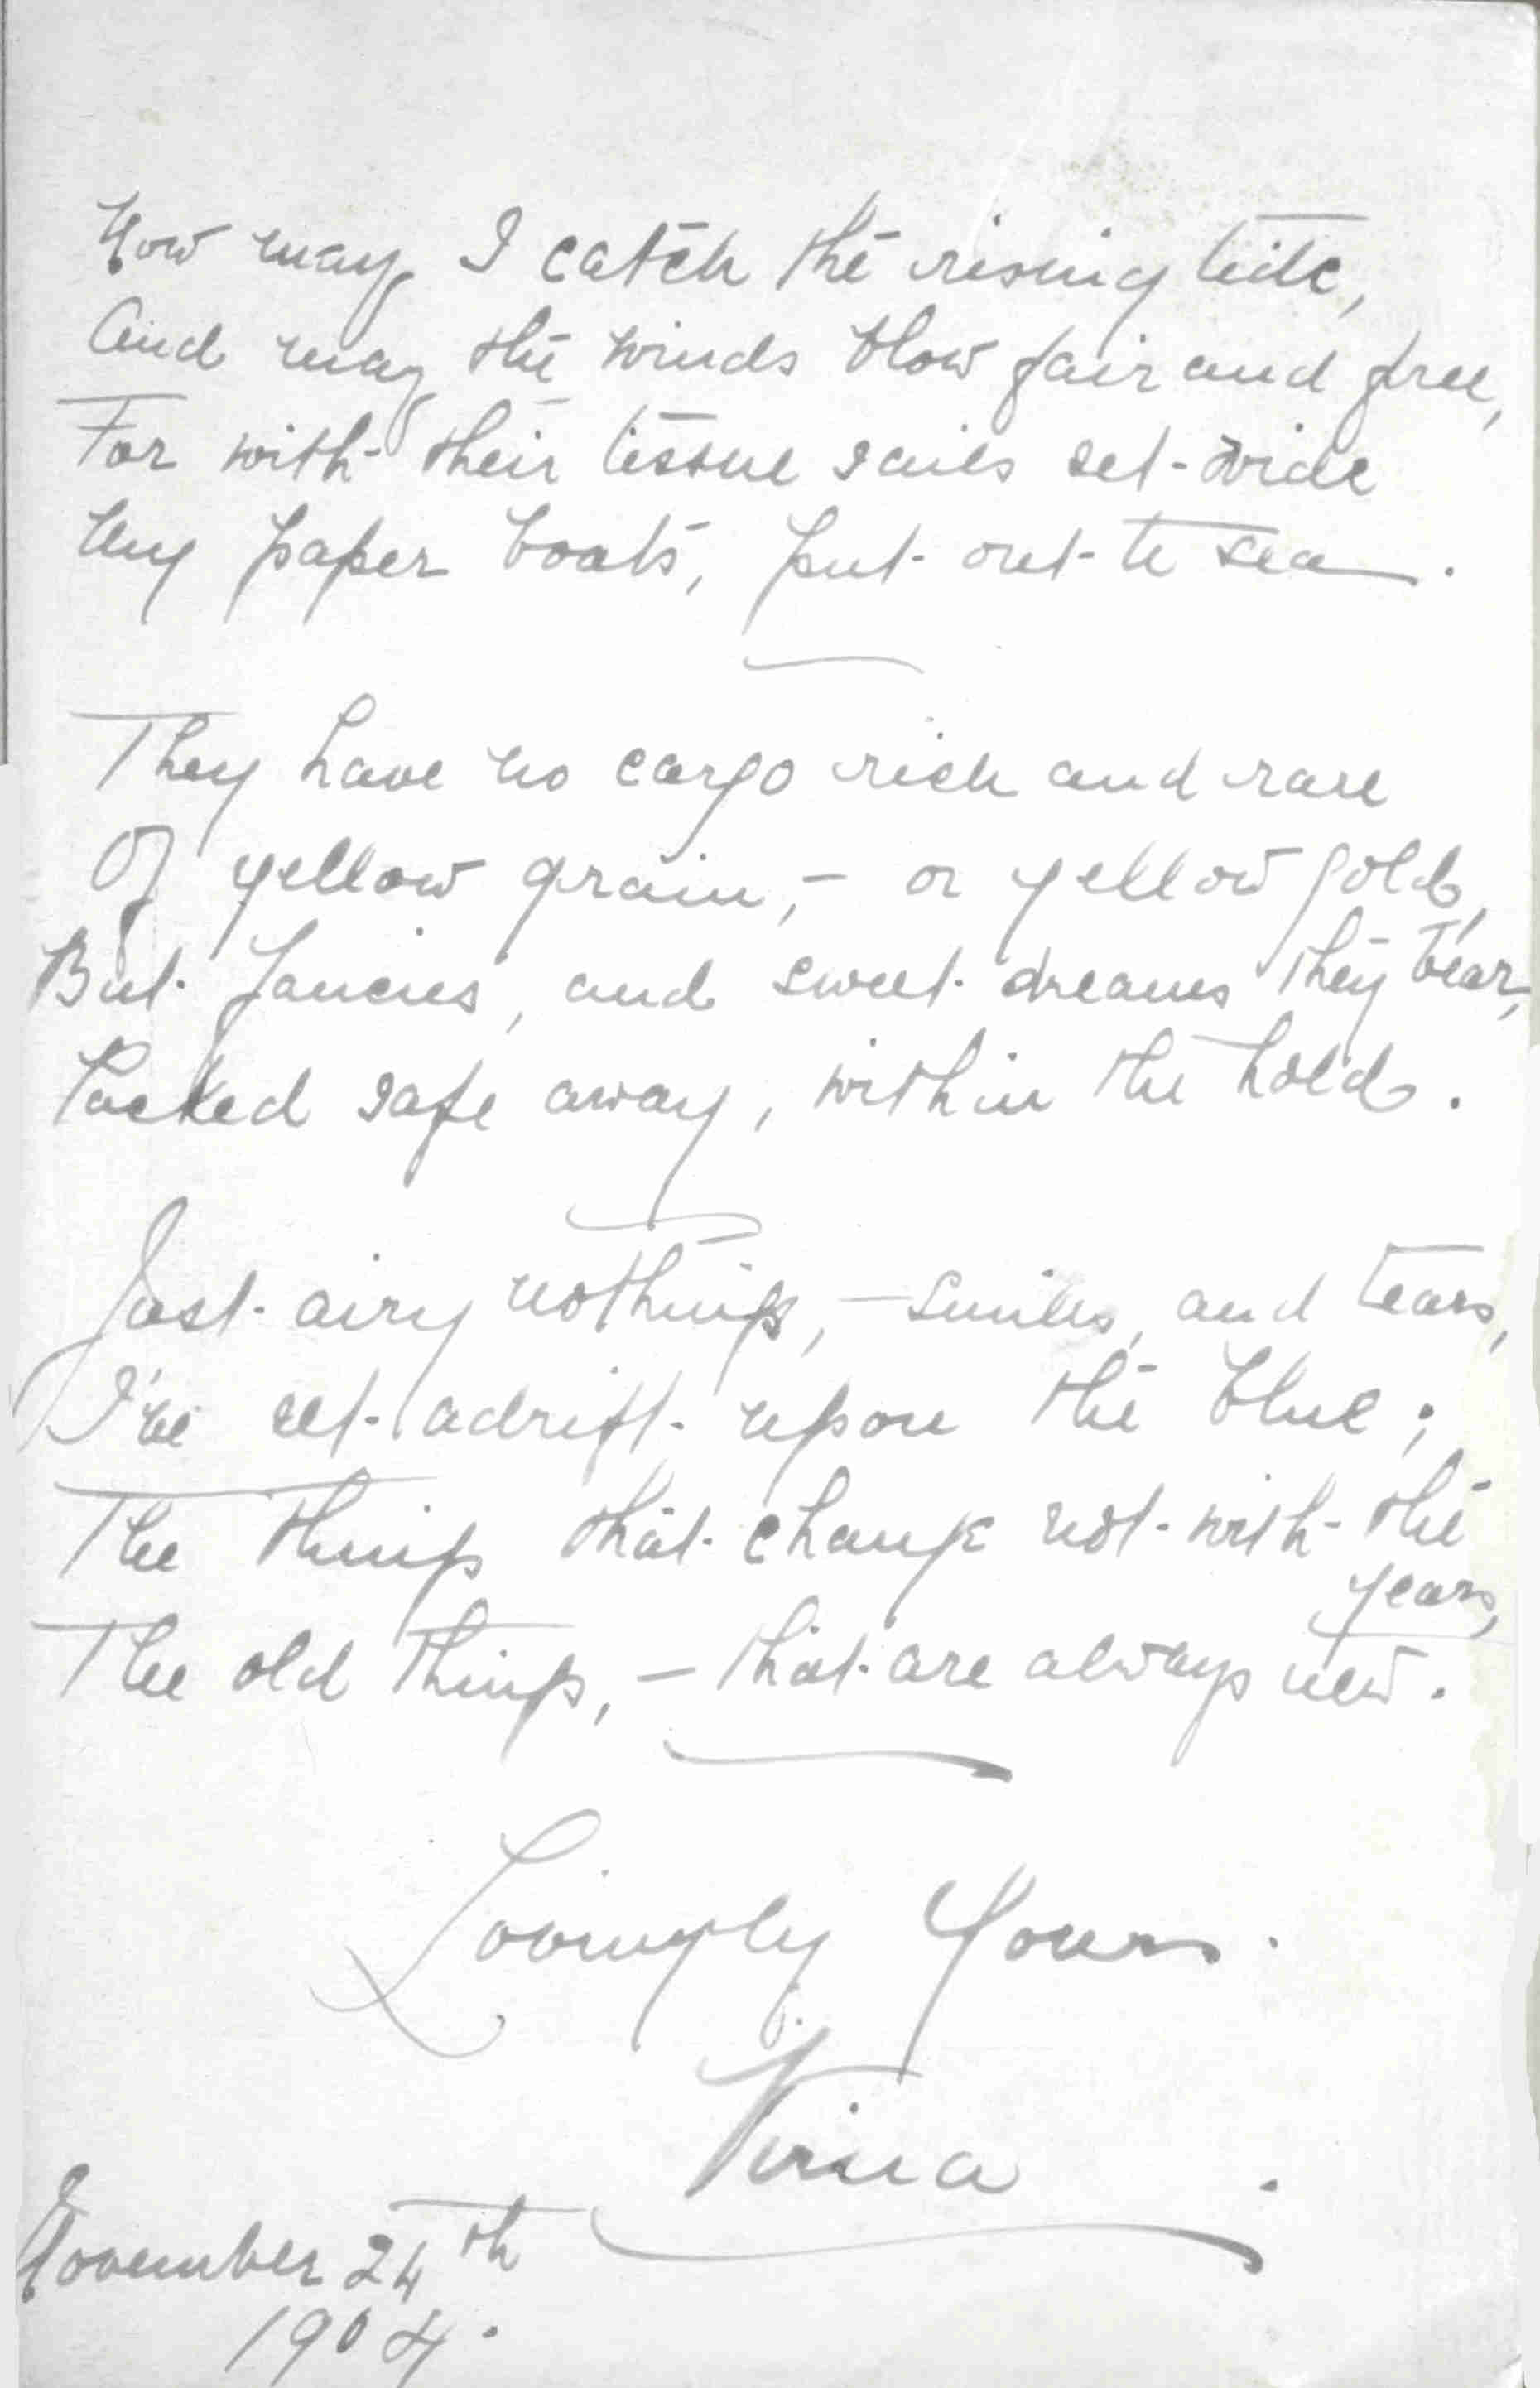 Now may I catch the rising tide,
And may the winds blow fair and free,
For with their tissue sails set wide
My paper boats, put out to sea.
They have no cargo rich and rare
Of yellow grain, - or yellow gold,
But fancies, and sweet dreams they bear,
Packed safe away, within the hold.
Just airy nothings, - smiles, and tears,
I've set adrift upon the blue;
The things that change not with the
years,
The old things, - that are always new.
Lovingly Yours.
Virna
November 24th
1904.